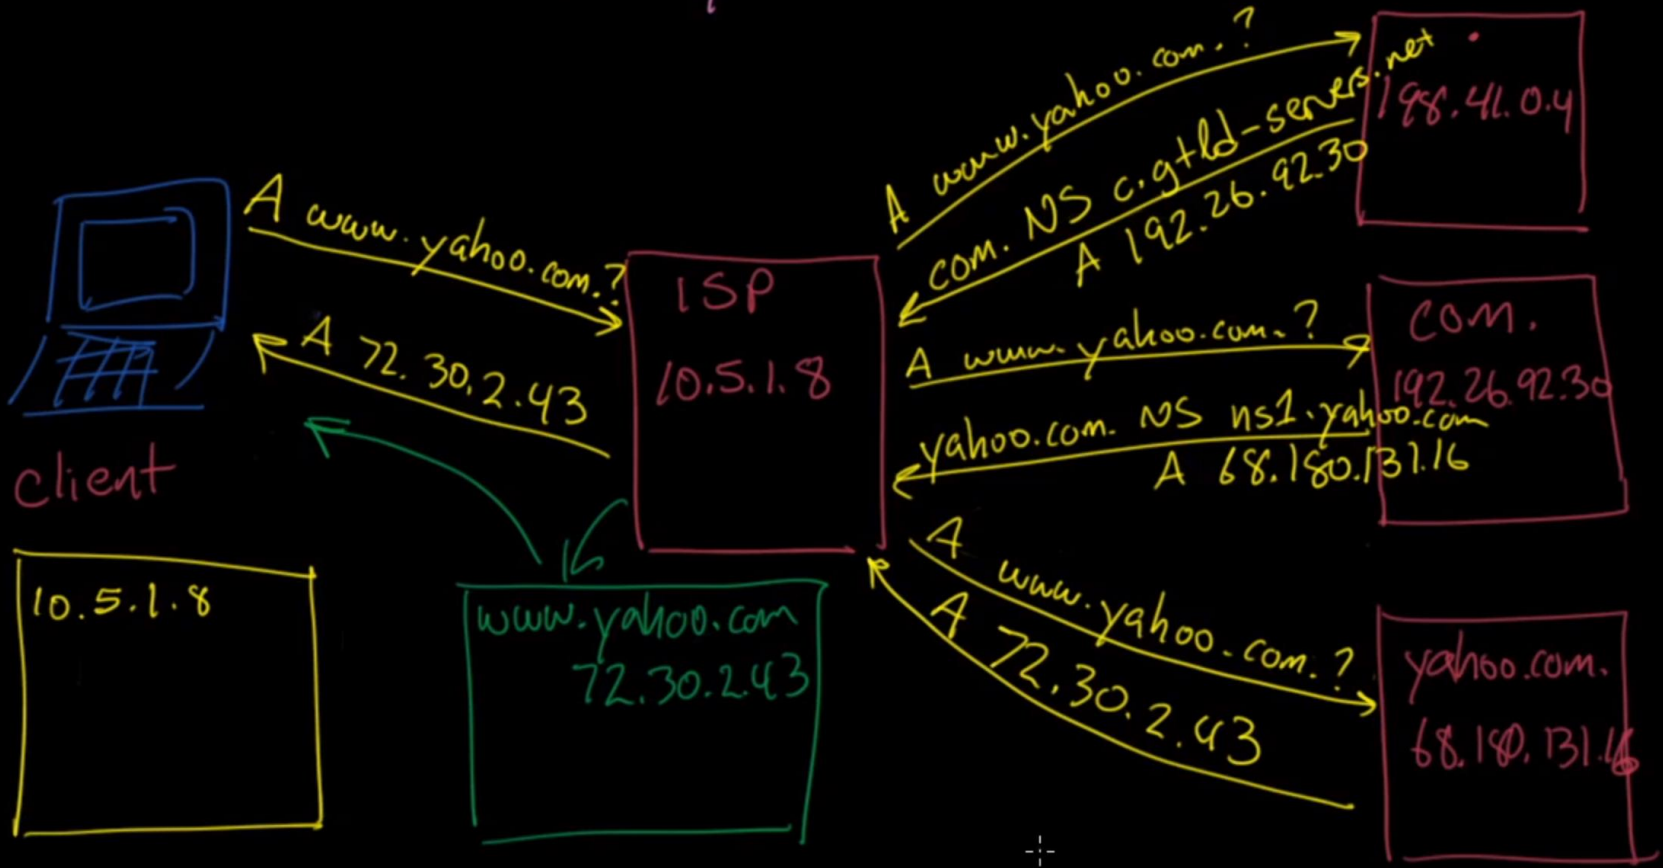 A www.yahoo.com.?
A 72.30.2.43
client
10.5.1.8
ISP
10.5.1.8
www.yahoo.com
72.30.2.43
A www.yahoo.com.?
com. NS c.gtld-servers.net
A 192.26.92.30
A www.yahoo.com.?
yahoo.com. NS ns1.yahoo.com
A 68.180.131.16
A www.yahoo.com.?
A 72.30.2.43
.
198.41.0.4
com.
192.26.92.30
yahoo.com.
68.180.131.16